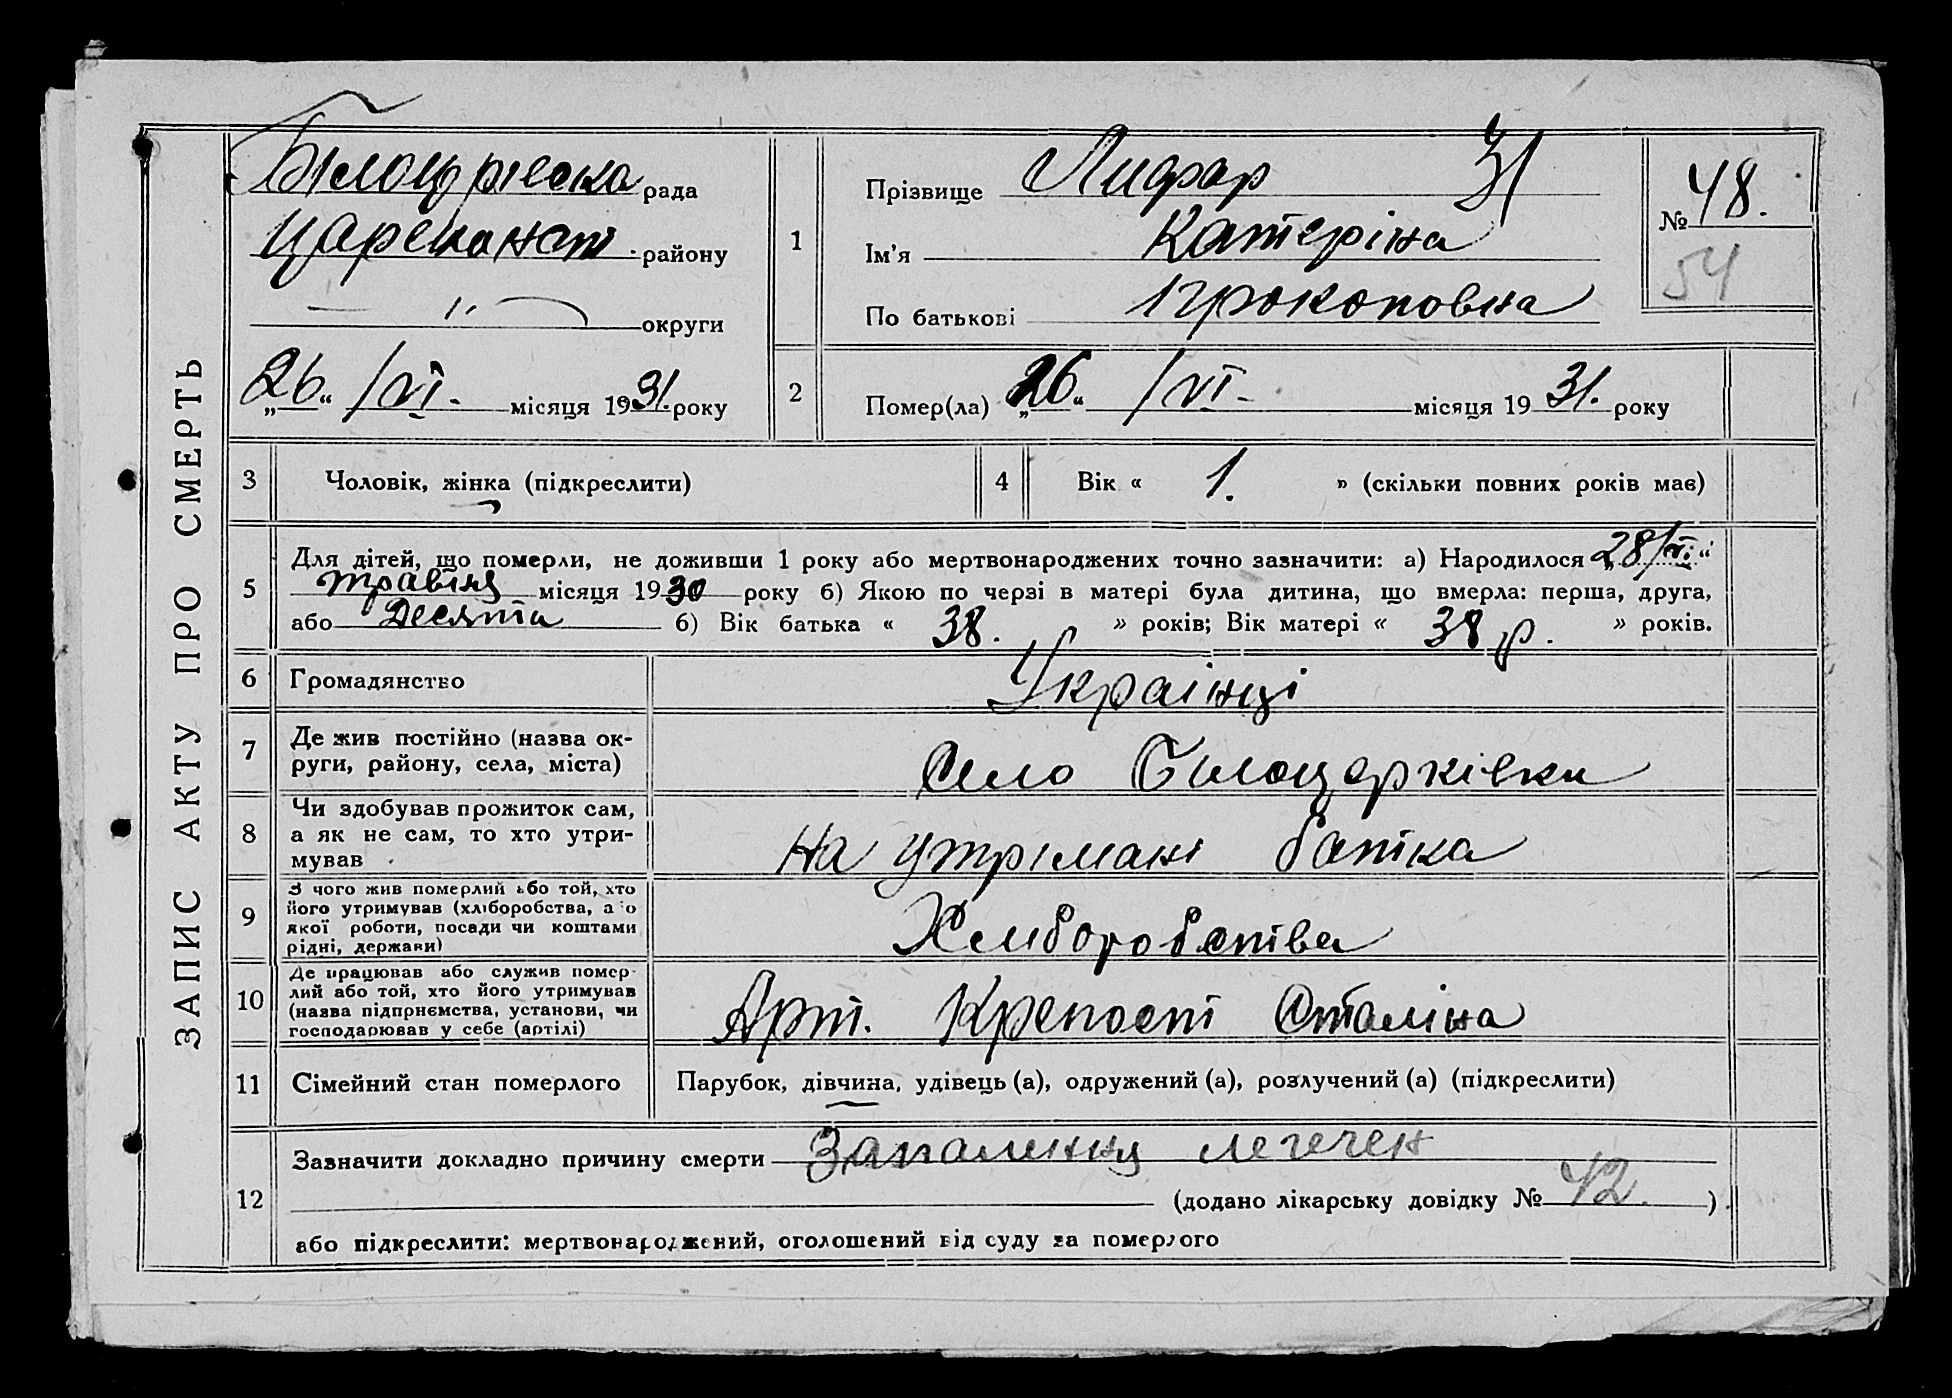 ЗАПИС АКТУ ПРО СМЕРТЬ
рада
району
" округи
„26“ /VI. місяця 1931. року
1
Прізвище Лифар 31
Ім'я Катеріна
По батькові Прокоповна
№ 48.
54
2
Помер(ла) „26.“ /VI. місяця 1931. року
3 Чоловік, жінка (підкреслити)
4 Вік « 1. » (скільки повних років має)
5
Для дітей, що померли, не доживши 1 року або мертвонароджених точно зазначити: а) Народилося „28/VI.“
травня місяця 1930 року б) Якою по черзі в матері була дитина, що вмерла: перша, друга,
або Десята б) Вік батька « 38. » років; Вік матері « 38 р. » років.
6 Громадянство Українці
7 Де жив постійно (назва ок-
руги, району, села, міста) Село Білоцерківки
8 Чи здобував прожиток сам,
а як не сам, то хто утри-
мував На утрімані батка
9 З чого жив померлий або той, хто
його утримував (хліборобства, або
якої роботи, посади чи коштами
рідні, держави) Хлиборобства
10 Де працював або служив помер-
лий або той, хто його утримував
(назва підприємства, установи, чи
господарював у себе (артілі) Арт. Крепост Сталіна
11 Сімейний стан померлого Парубок, дівчина, удівець (а), одружений (а), розлучений (а) (підкреслити)
12
Зазначити докладно причину смерти Запалення легечен
(додано лікарську довідку № 42. )
або підкреслити: мертвонароджений, оголошений від суду за померлого